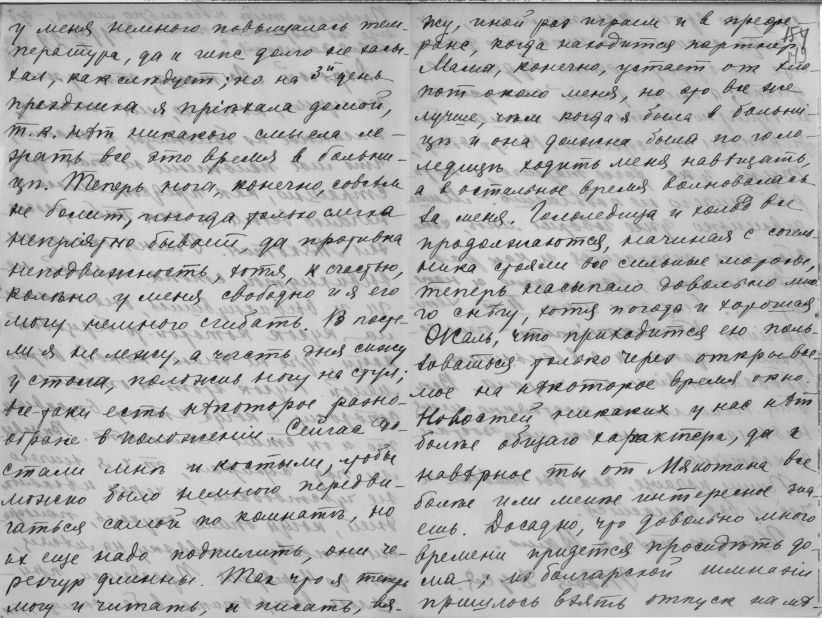 у меня немного повышалась тем-
пература, да и гипс долго не засы-
хал, какъ слѣдует; но на 3й день
праздника я пріѣхала домой,
т.к. нѣт никакого смысла ле-
жать все это время в больни-
цѣ. Теперь нога, конечно, совсѣм
не болит, иногда только слегка
непріятно бывает, да противна
неподвижность, хотя, к счастью,
колѣно у меня свободно и я его
могу немного сгибать. В посте-
ли я не лежу, а часть дня сижу
у стола, положив ногу на стул;
все-таки есть нѣкоторое разно-
образіе в положеніи. Сейчас до-
стали мнѣ и костыли, чтобы
можно было немного передви-
гаться самой по комнатѣ, но
их еще надо подпилить, они че-
резчур длинны. Так что я теперь
могу и читать, и писать, вя-
жу, иной раз играем и в префе-
ранс, когда находится партнер.
Мама, конечно, устает от хло-
пот около меня, но это все же
лучше, чѣм когда я была в больни-
цѣ и она должна была по голо-
ледицѣ ходить меня навѣщать,
а в остальное время волновалась
за меня. Гололедица и холод все
продолжаются, начиная с сочель-
ника стояли все сильные морозы,
теперь насыпало довольно мно-
го снѣгу, хотя погода и хорошая.
Жаль, что приходится ею поль-
зоваться только через открывае-
мое на нѣкоторое время окно.
Новостей никаких у нас нѣт
болѣе общаго характера, да и
навѣрное ты от Мякотина все
болѣе или менѣе интересное зна-
ешь. Досадно, что довольно много
времени придется просидѣть до-
ма; из болгарской гимназіи
пришлось взять отпуск на мѣ-